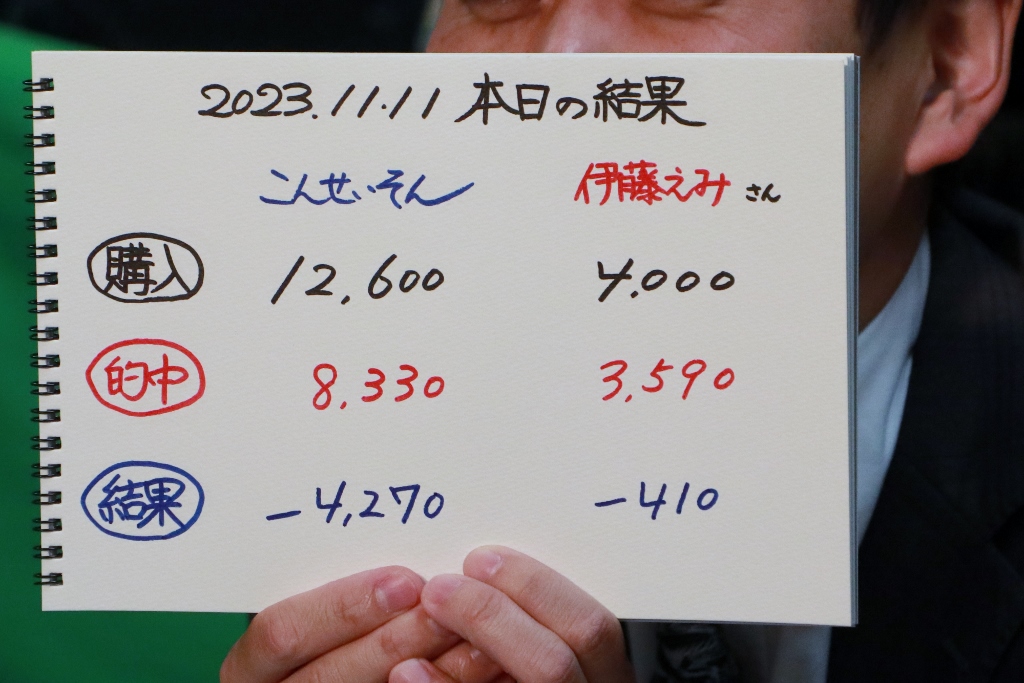 2023.11.11 本日の結果
こんせいそん 伊藤えみ さん
購入 12,600 4,000
的中 8,330 3,590
結果 -4,270 -410